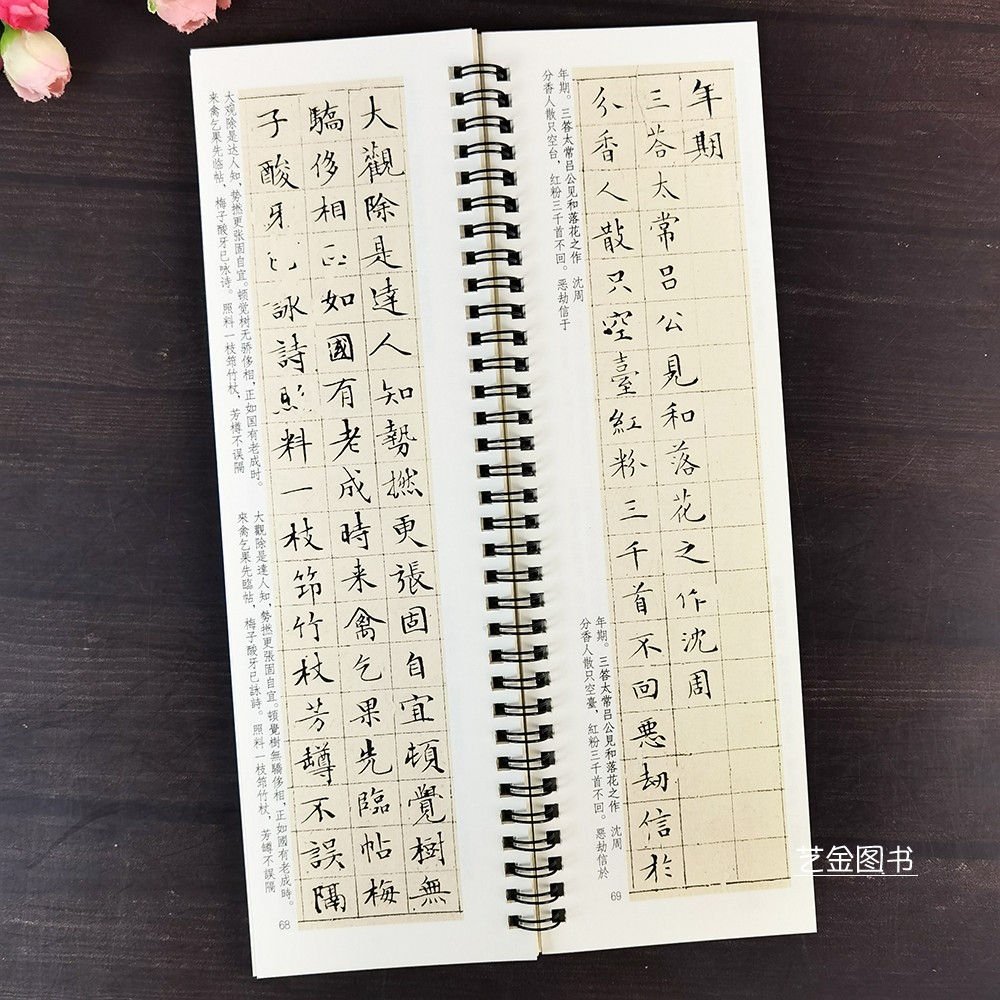 年期
三荅太常吕公見和落花之作沈周
分香人散只空臺紅粉三千首不回悪劫信於
年期。三答太常吕公见和落花之作 沈周
分香人散只空台，红粉三千首不回。恶劫信于
年期。三答太常吕公見和落花之作 沈周
分香人散只空臺，紅粉三千首不回。惡劫信於
69
大觀除是達人知勢撚更張固自宜頓覺樹無
驕侈相正如國有老成時来禽乞果先臨帖梅
子酸牙已詠詩照料一枝笻竹杖芳罇不誤隔
大观除是达人知，势撚更张固自宜。顿觉树无骄侈相，正如国有老成时。
来禽乞果先临帖，梅子酸牙已咏诗。照料一枝筇竹杖，芳樽不误隔
大觀除是達人知，勢撚更張固自宜。頓覺樹無驕侈相，正如國有老成時。
來禽乞果先臨帖，梅子酸牙已詠詩。照料一枝筇竹杖，芳罇不誤隔
68
艺金图书